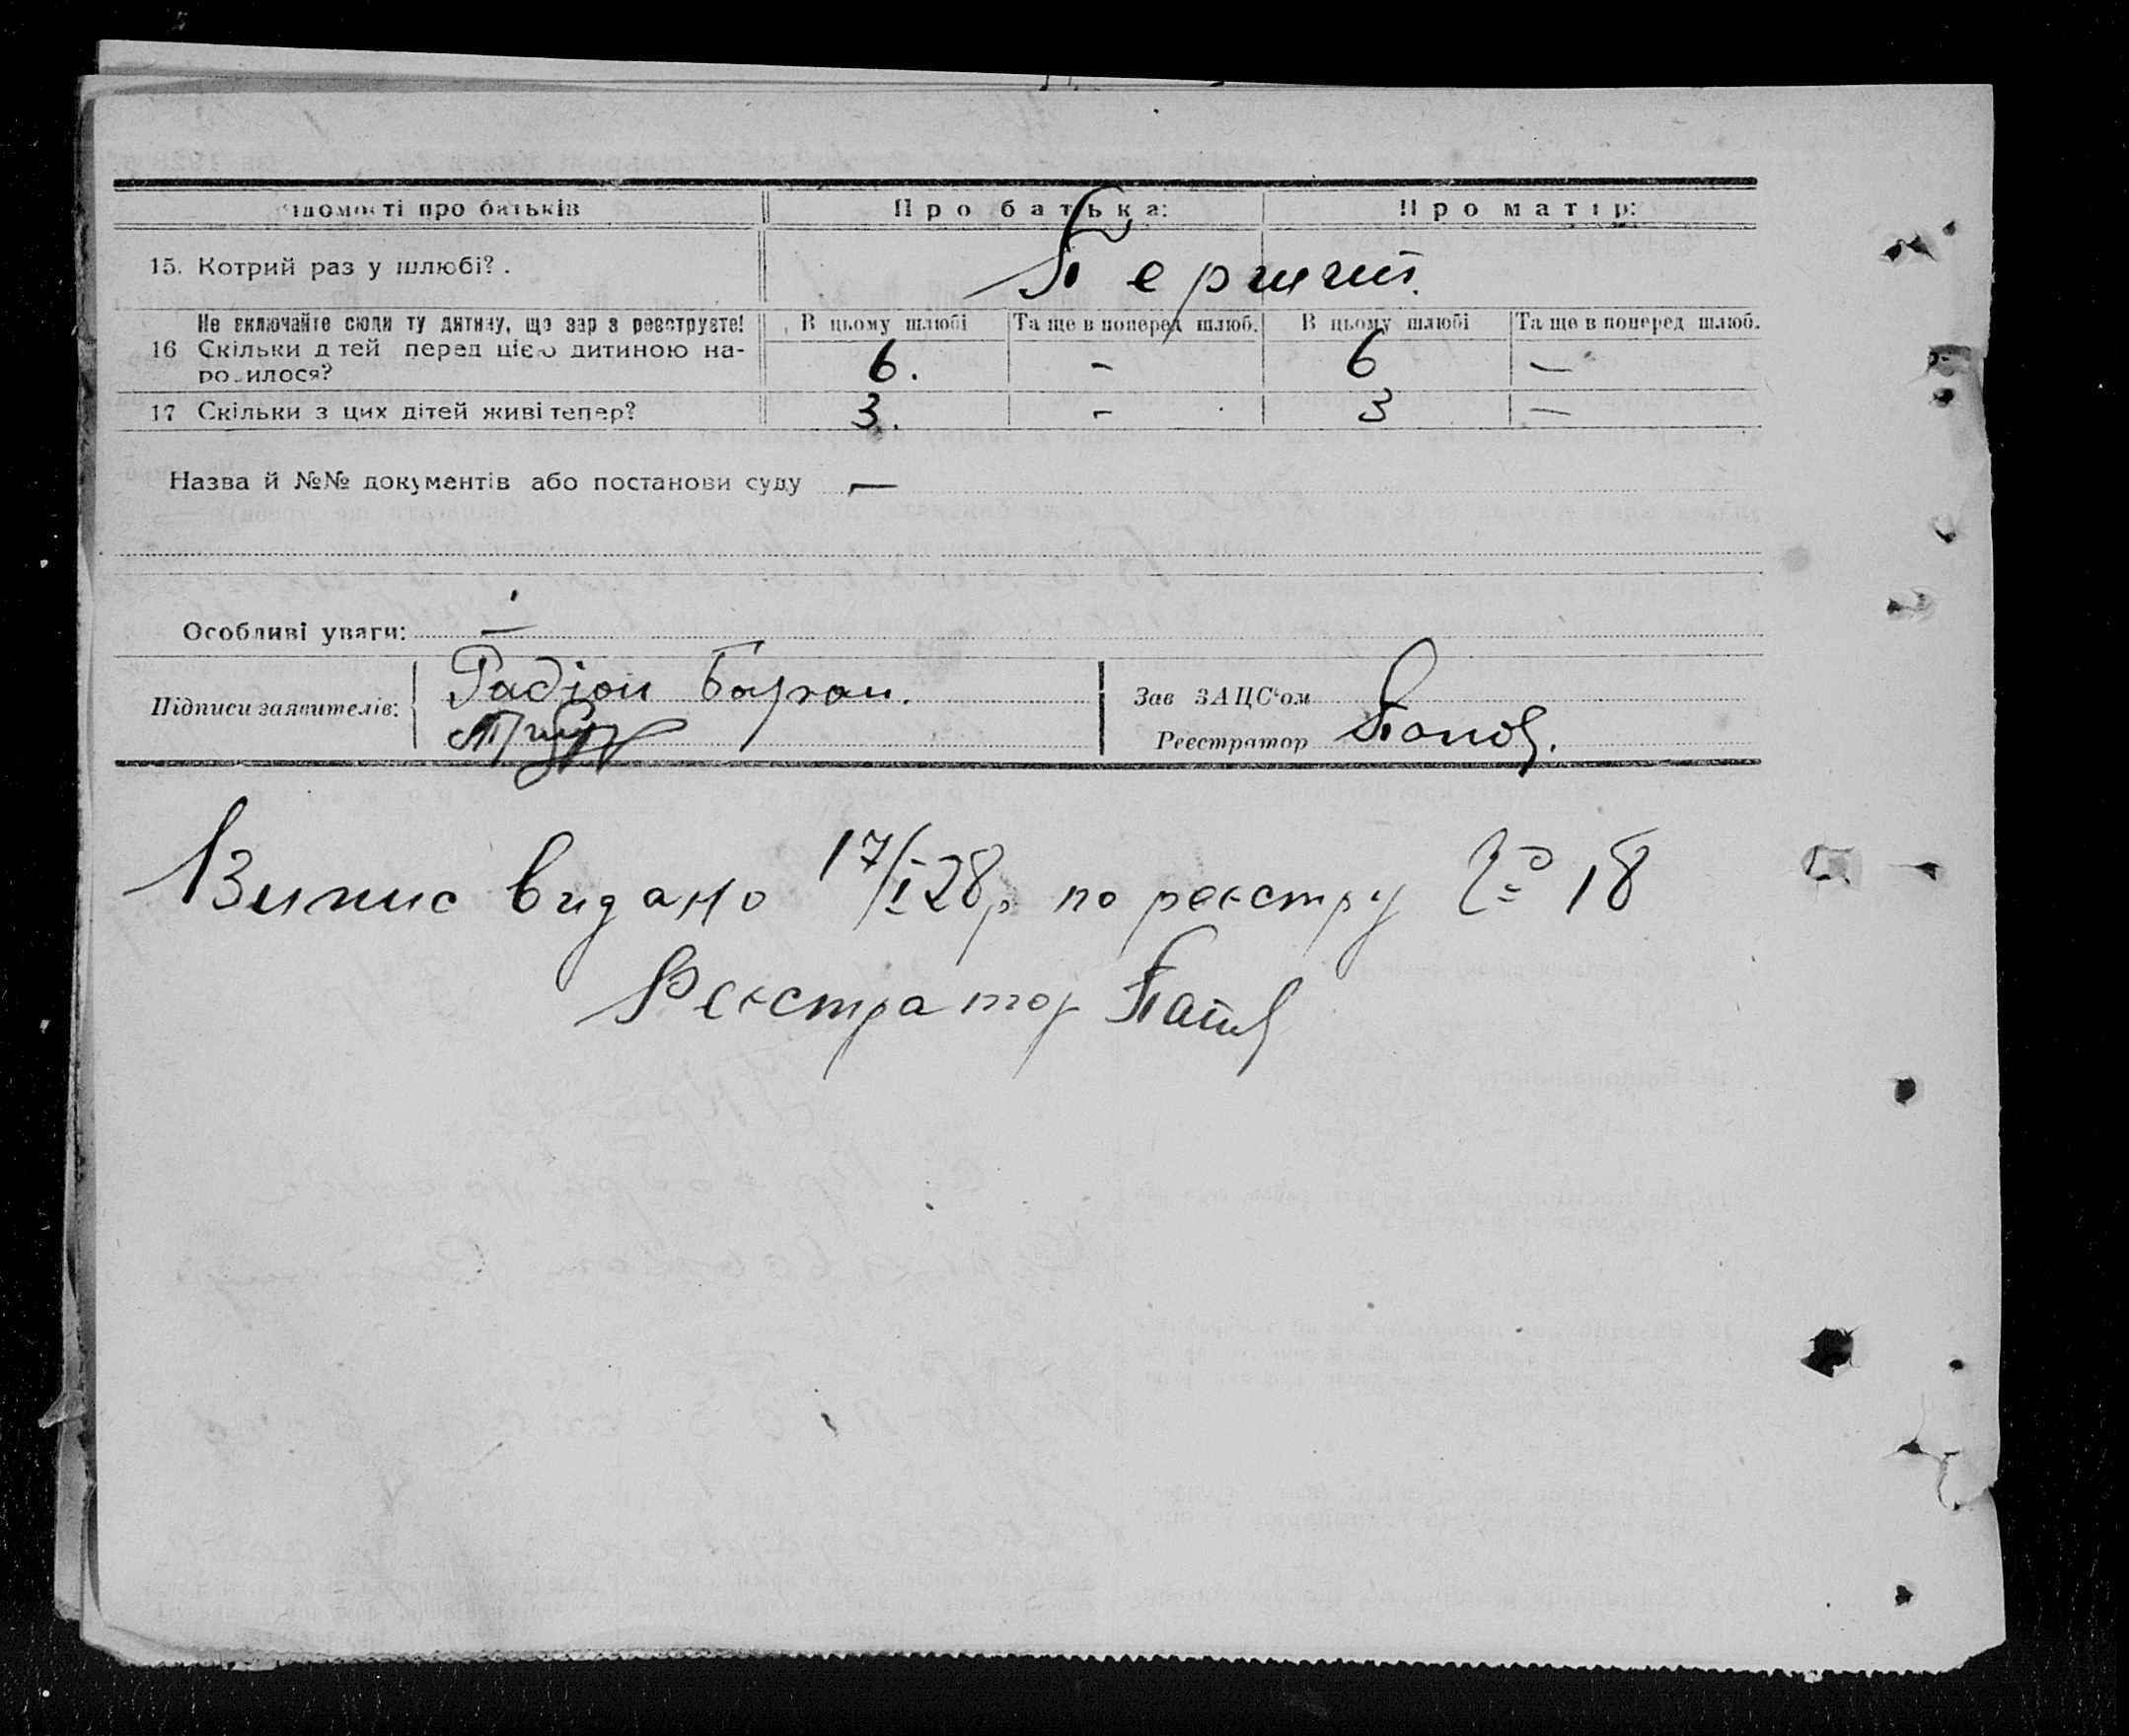 Відомості про батьків Про батька: Про матір:
15. Котрий раз у шлюбі? . Перший.
Не включайте сюди ту дитину, що зараз реєструєте! В цьому шлюбі Та ще в поперед шлюб. В цьому шлюбі Та ще в поперед шлюб.
16 Скільки дітей перед цією дитиною на-
родилося? 6. - 6 —
17 Скільки з цих дітей живі тепер? 3. - 3 —
Назва й №№ документів або постанови суду —
Особливі уваги: —
Підписи заявителів: Радіон
Зав ЗАЦС'ом
Реєстратор Попов.
Випис видано 17/I 28р по реєстру № 18
Реєстратор Попов